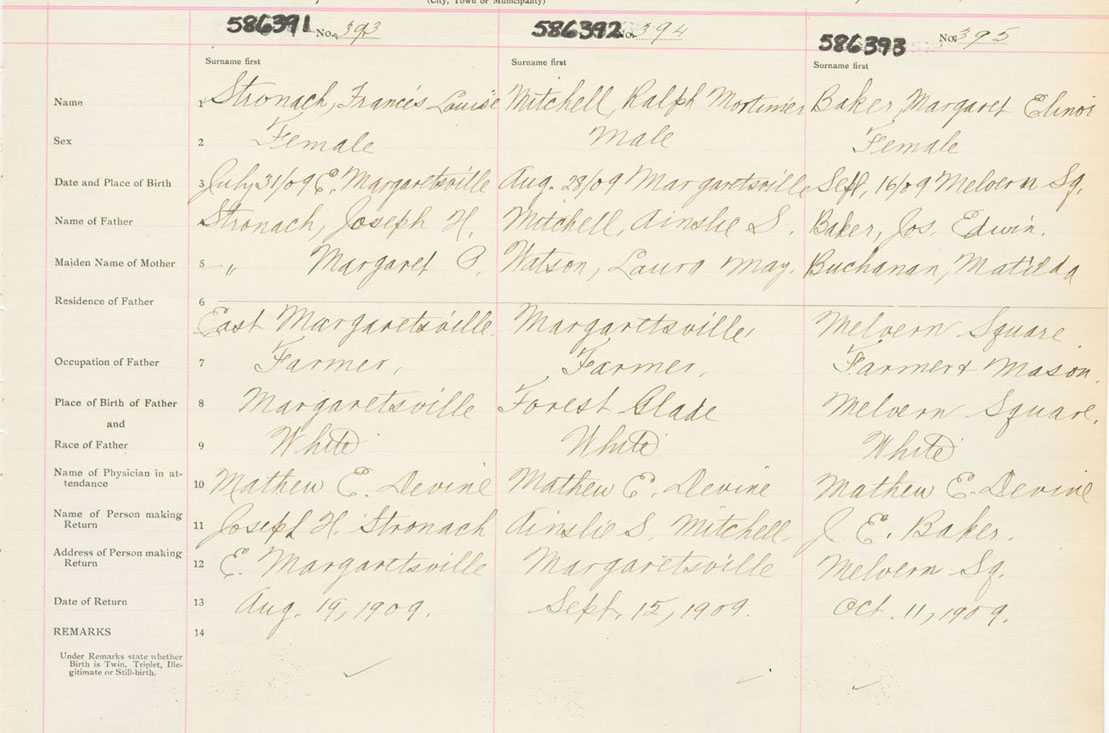 (City, Town or Municipality)
586391 No. 393 586392 No. 394 586393 No. 395
Surname first Surname first Surname first
Name 1 Stronach, Francis Louise Mitchell, Ralph Mortimer Baker, Margaret Elinor
Sex 2 Female Male Female
Date and Place of Birth 3 July 31/09 E. Margaretsville Aug. 28/09 Margaretsville Sept, 16/09 Melvern Sq.
Name of Father 4 Stronach, Joseph H. Mitchell, Ainslie S. Baker, Jos. Edwin.
Maiden Name of Mother 5 " Margaret P. Watson, Laura May. Buchanan, Matilda
Residence of Father 6
East Margaretsville. Margaretsville, Melvern Square
Occupation of Father 7 Farmer, Farmer, Farmer & Mason.
Place of Birth of Father 8 Margaretsville Forest Glade Melvern Square,
and
Race of Father 9 White White White
Name of Physician in at-
tendance 10 Mathew E. Devine Mathew E. Devine Mathew E. Devine
Name of Person making
Return 11 Joseph H. Stronach Ainslie S. Mitchell. J. E. Baker.
Address of Person making
Return 12 E. Margaretsville Margaretsville Melvern Sq.
Date of Return 13 Aug. 19, 1909. Sept. 15, 1909. Oct. 11, 1909.
REMARKS 14
Under Remarks state whether
Birth is Twin, Triplet, Ille-
gitimate or Still-birth.